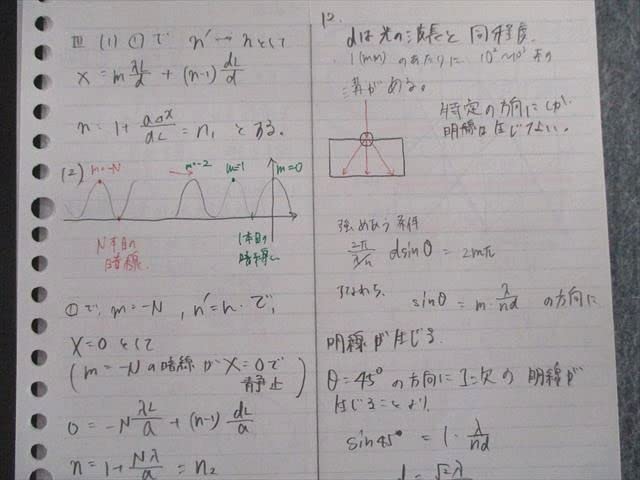 III (1) ①で n'→nとして
x = m λL/d + (n-1) dL/d
n = 1 + aΔx/dL = n₁ とする。
(2)
m=-N
m=-2
m=1
m=0
N本目の
暗線
1本目の
暗線
①で, m=-N, n'=n. で,
x=0 として
(m=-N の暗線が x=0で
静止)
0 = -N λL/a + (n-1) dL/a
n = 1 + Nλ/a = n₂
12.
dは光の波長と同程度
1(mm)のあたりに 10²~10³本の
溝がある。
特定の方向にしか
明線は生じない。
強めあう条件
2π/(λ/n) d sinθ = 2mπ
すなわち
sinθ = m・λ/nd の方向に
明線が生じる
θ=45°の方向に1次の明線が
生じることより
sin45° = 1・λ/nd